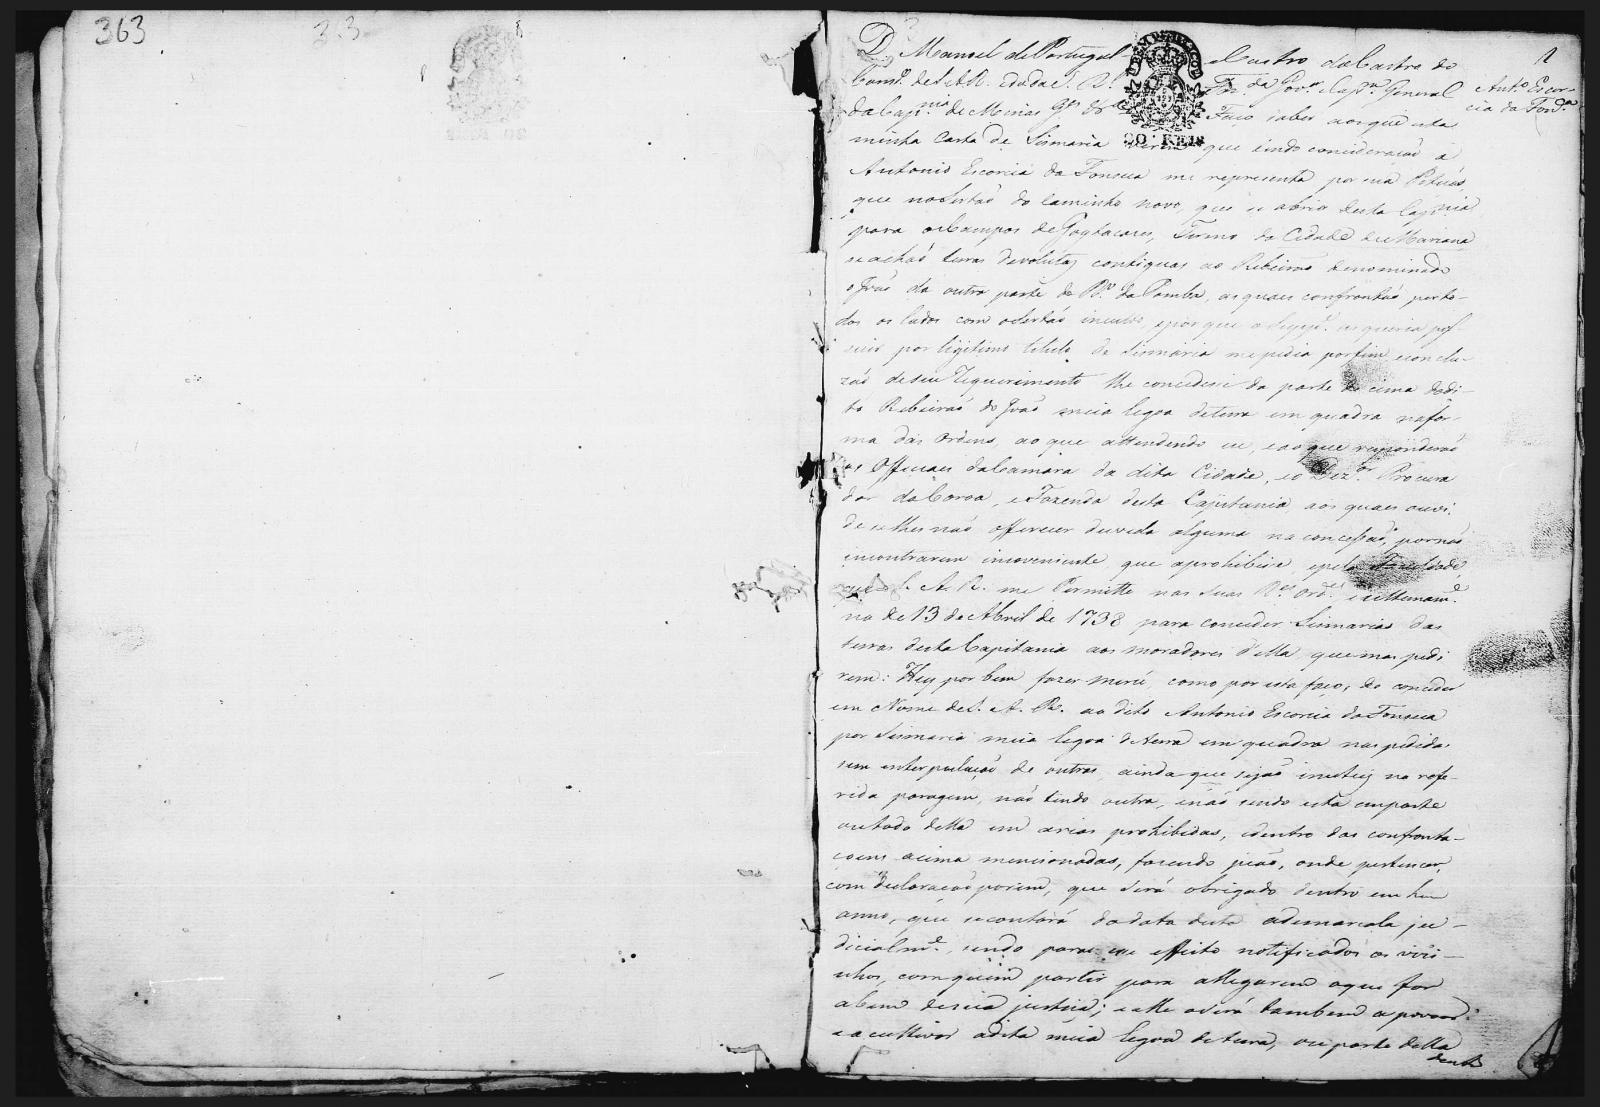 363
3.3
8
3
1
D. Manoel de Portugal e Castro do Castro do
Cons.º de S. A. R. e da da e. R.l Faz.da Gov.or e Cap.m General
da Cap.nia de Minas G.s &.ª Faço saber aos que esta
Ant.º Escor-
cia da Fon.ca
20 REIS
minha Carta de Sismaria virem que tendo consideraçaõ á
Antonio Escorcia da Fonseca me representa por sua Petiçaõ,
que no Sertaõ do Caminho novo, que se abrio desta Cap.nia
para os Campos de Goytacazes, Termo da Cidade de Mariana
se achaõ terras devolutas contiguas ao Ribeiraõ denominado
o Joaõ da outra parte do R.º da Pomba, as quaes confrontaõ por to-
dos os lados com o Sertaõ inculto, e por que o Supp.e as queria pos-
suir por legitimo titulo de Sismaria me pedia por fim e conclu-
zaõ de seu requerimento lhe concedesse da parte de cima do di-
to Ribeiraõ do Joaõ meia legoa de terra em quadra na for-
ma das Ordens, ao que attendendo eu, e ao que responderaõ
os Officiaes da Camara da dita Cidade, e o Dez.or Procura
dor da Coroa, e Fazenda desta Capitania aos quaes ouvi
de se lhes naõ offerecer duvida alguma na concessaõ, por naõ
encontrarem inconveniente, que a prohibisse, e pela Faculdade,
que S. A. R. me Permitte nas Suas R.es Ord.s e ultimam.e
na de 13 de Abril de 1738 para conceder Sismarias das
terras desta Capitania aos moradores d'ella que mas pedi
rem: Hey por bem fazer mercê, como por esta faço, de conceder
em Nome de S. A. R. ao dito Antonio Escorcia da Fonseca
por Sismaria meia legoa de terra em quadra nas pedidas
sem interpulaçaõ de outras, ainda que sejaõ inuteis na refe-
rida paragem, naõ tendo outra, e naõ sendo esta em parte
ou todo della em arias prohibidas, e dentro das confronta-
coens acima mencionadas, fazendo piaõ, onde pertencer,
com declaraçaõ porem, que será obrigado dentro em hum
anno, que se contará da data desta a demarcala ju-
dicialm.e, sendo para esse effeito notificados os visi-
nhos, com quem partir para allegarem o que for
a bem de sua justiça; e elle o será tambem a povoar
e a cultivar a dita meia legoa de terra, ou parte della
dentro